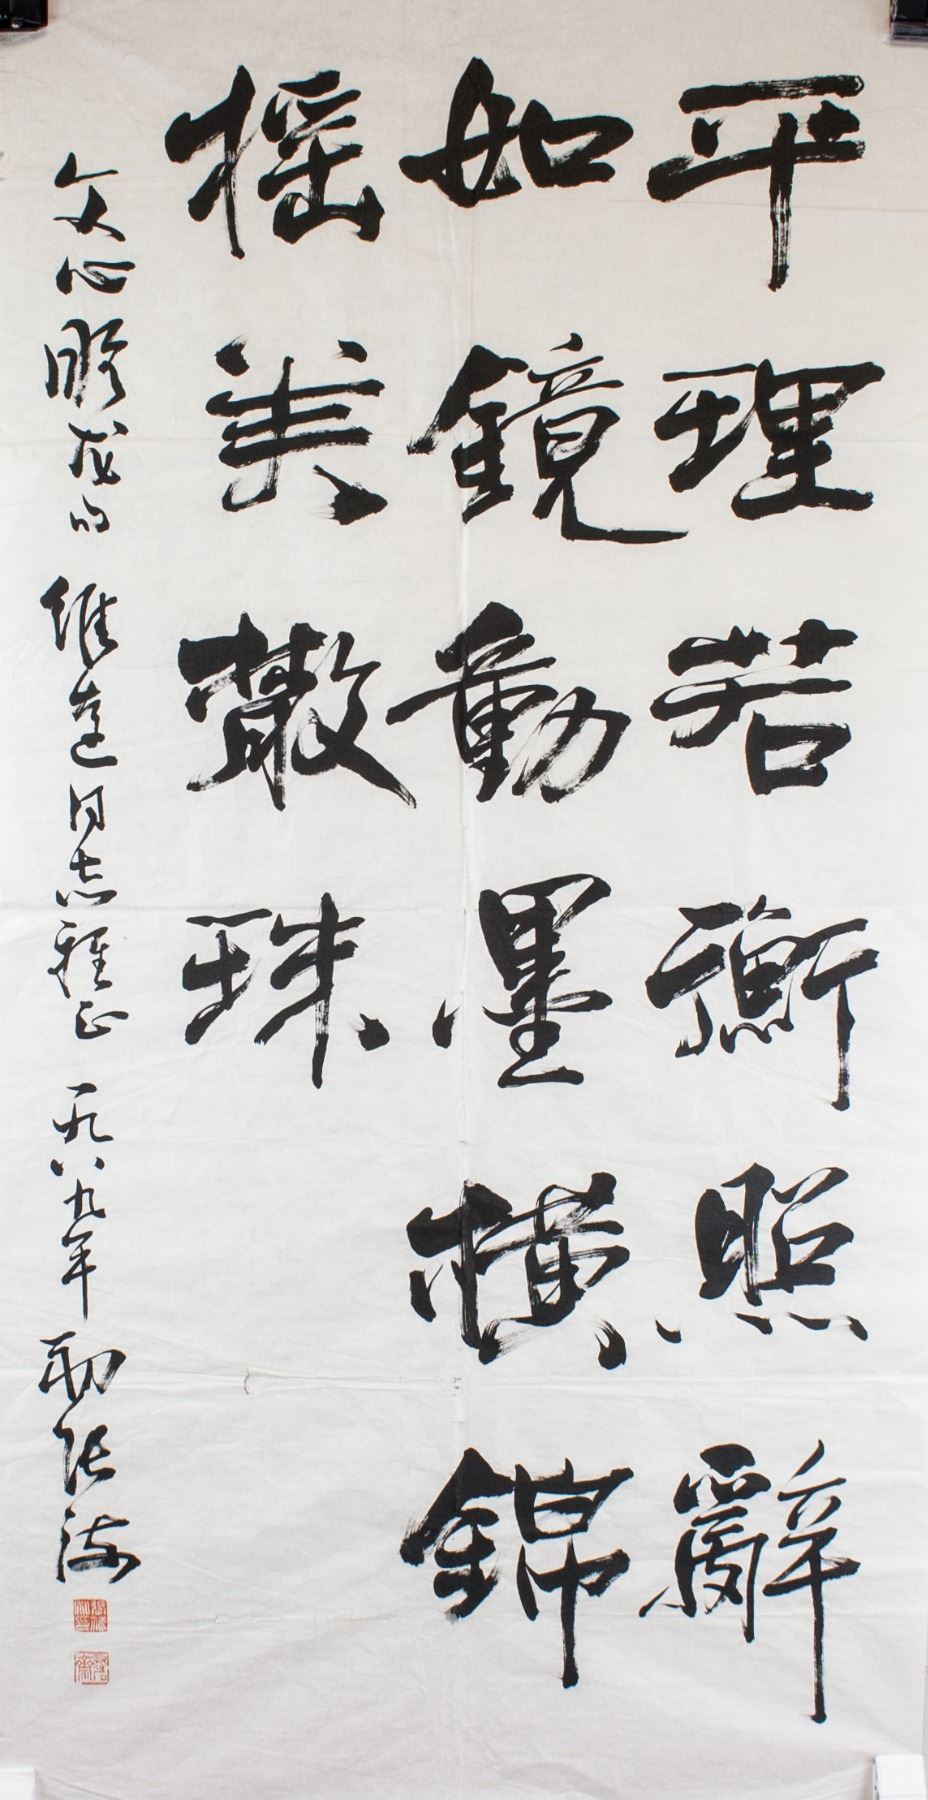 平理若衡照辭
如鏡動墨橫錦
搖美散珠
文心雕龙句 維達同志雅正 一九八九年 張海